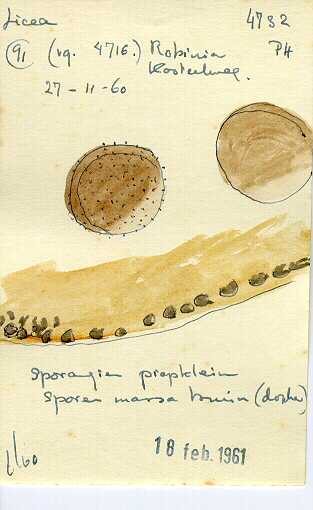 Licea 4732
91 (vg. 4716.) Robinia PH
Kosterlweg.
27-11-60
Sporangien piepklein
Sporen massa bruin (donker)
1/60
18 feb. 1961